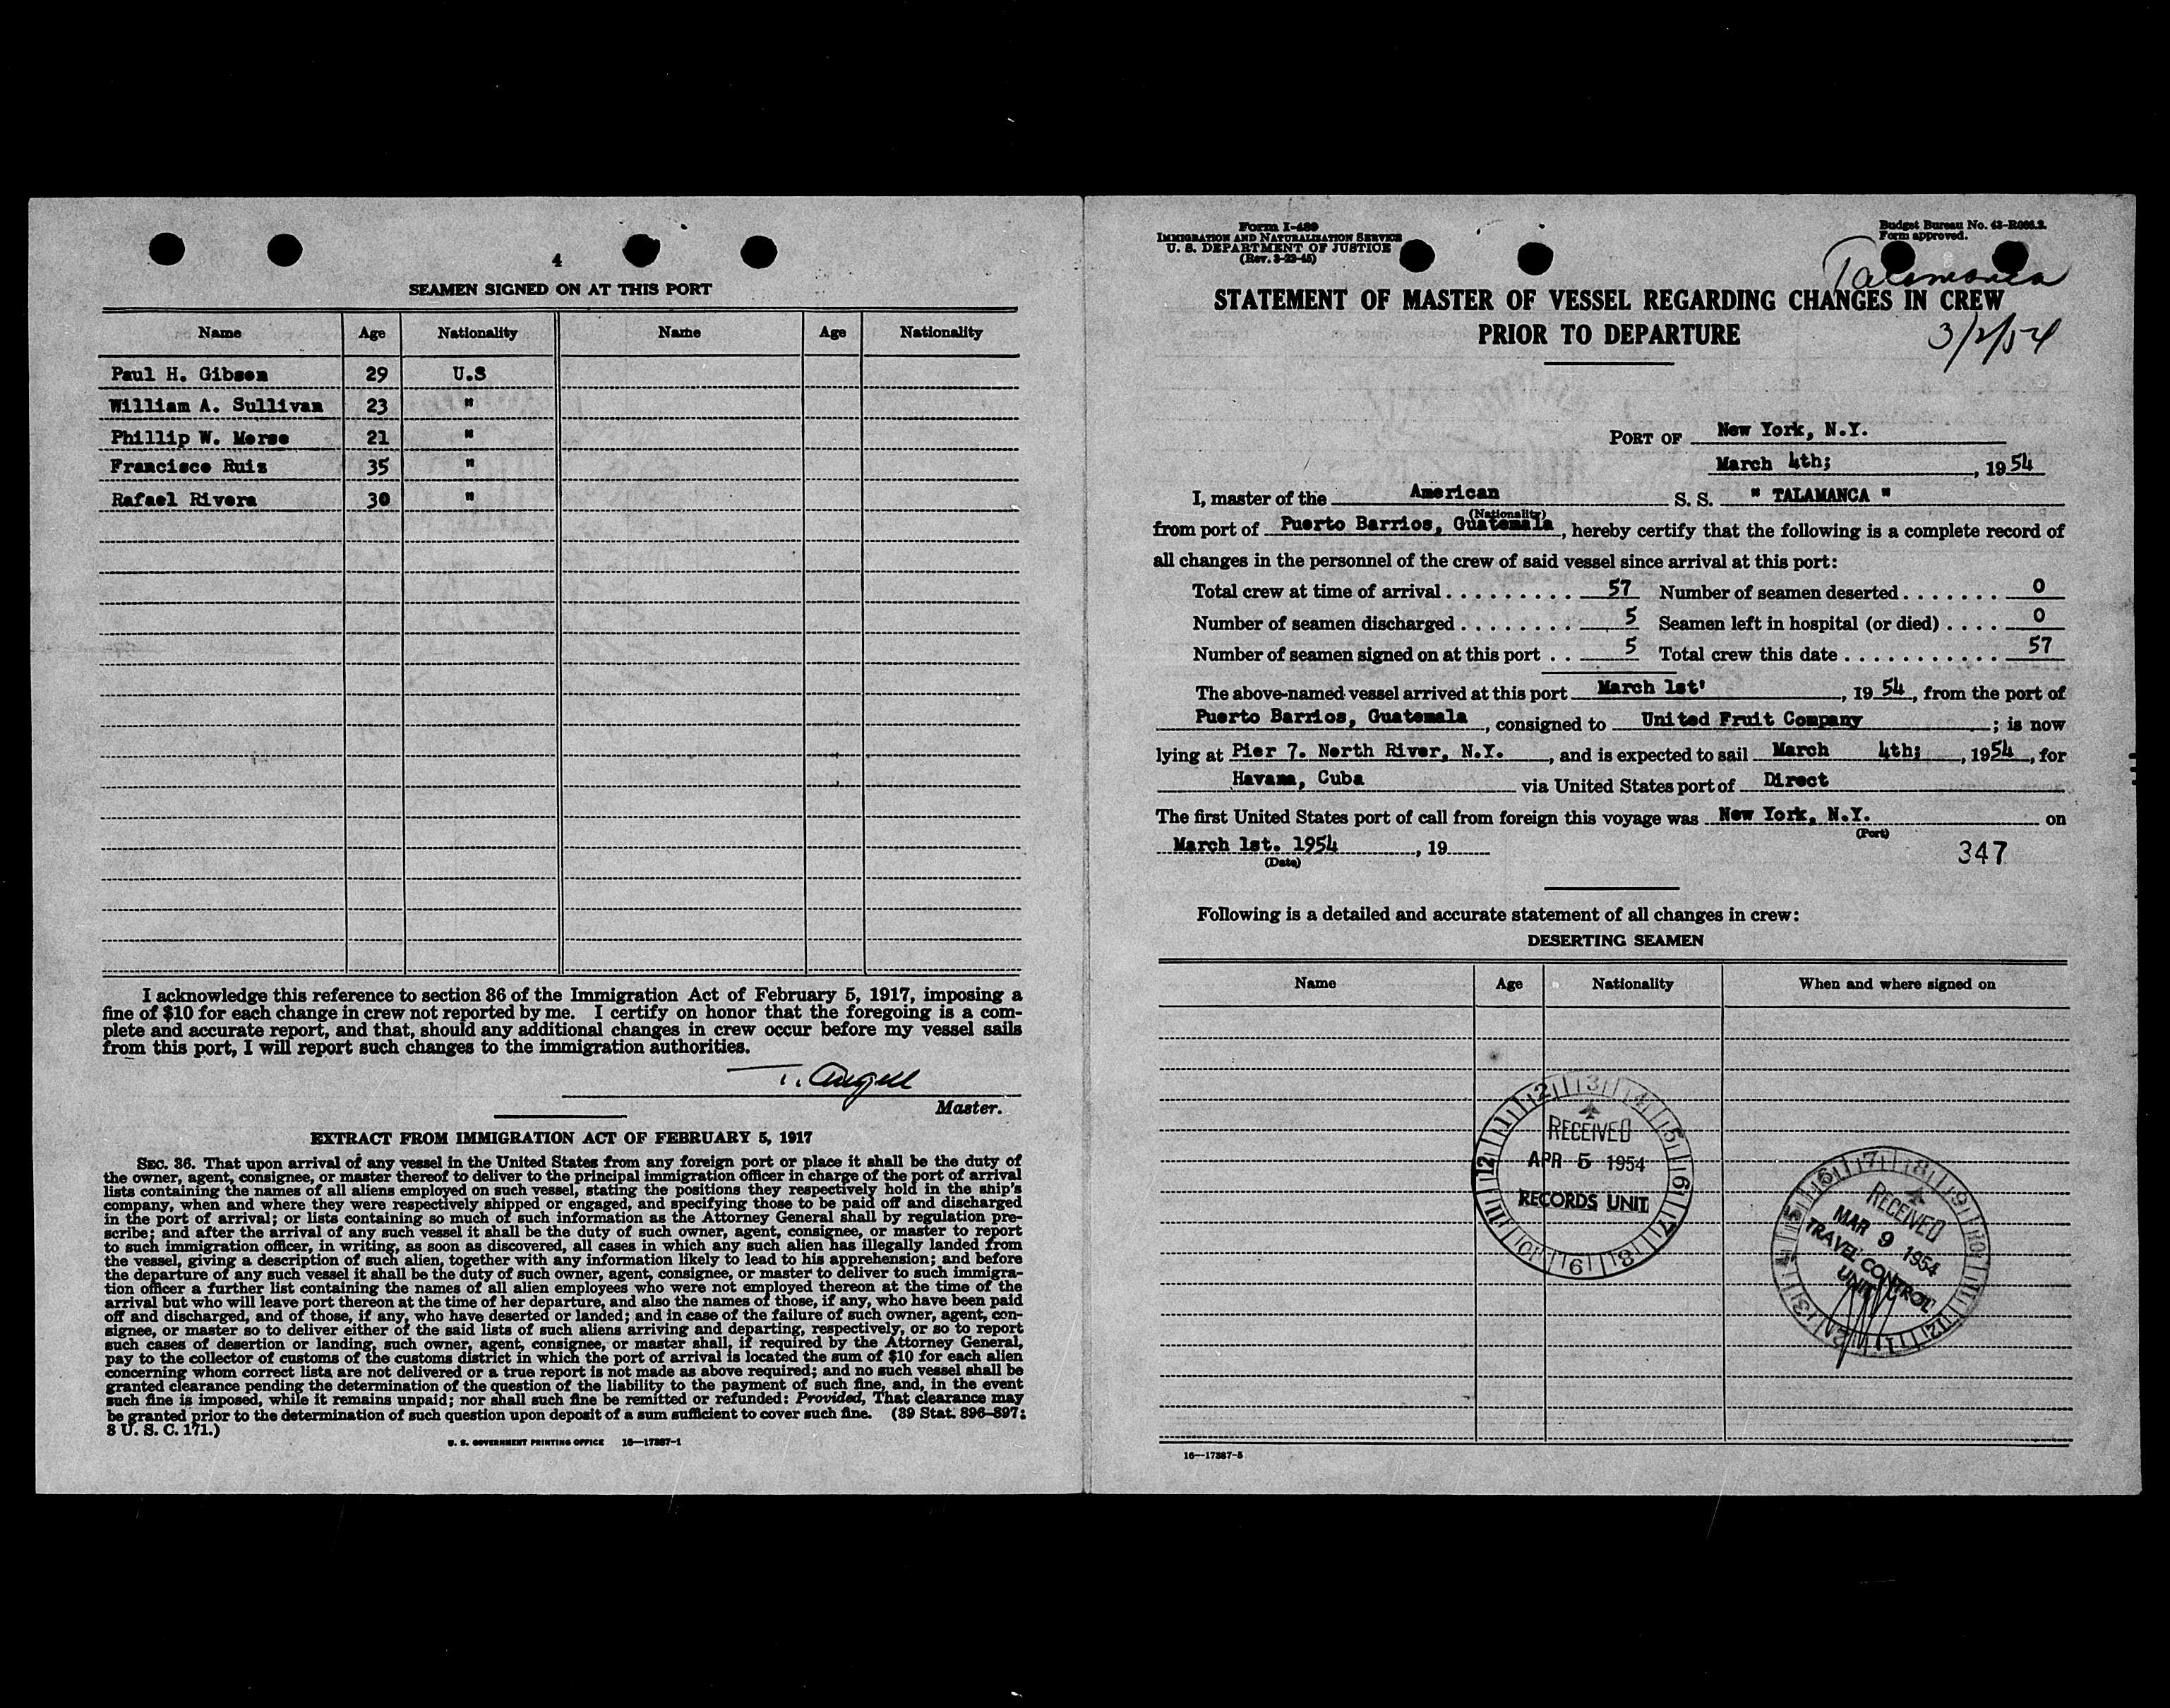 4
SEAMEN SIGNED ON AT THIS PORT
Name Age Nationality Name Age Nationality
Paul H. Gibson 29 U.S
William A. Sullivan 23 "
Phillip W. Morse 21 "
Francisco Ruiz 35 "
Rafael Rivera 30 "
I acknowledge this reference to section 36 of the Immigration Act of February 5, 1917, imposing a
fine of $10 for each change in crew not reported by me. I certify on honor that the foregoing is a com-
plete and accurate report, and that, should any additional changes in crew occur before my vessel sails
from this port, I will report such changes to the immigration authorities.
T. Angell
Master.
EXTRACT FROM IMMIGRATION ACT OF FEBRUARY 5, 1917
SEC. 36. That upon arrival of any vessel in the United States from any foreign port or place it shall be the duty of
the owner, agent, consignee, or master thereof to deliver to the principal immigration officer in charge of the port of arrival
lists containing the names of all aliens employed on such vessel, stating the positions they respectively hold in the ship's
company, when and where they were respectively shipped or engaged, and specifying those to be paid off and discharged
in the port of arrival; or lists containing so much of such information as the Attorney General shall by regulation pre-
scribe; and after the arrival of any such vessel it shall be the duty of such owner, agent, consignee, or master to report
to such immigration officer, in writing, as soon as discovered, all cases in which any such alien has illegally landed from
the vessel, giving a description of such alien, together with any information likely to lead to his apprehension; and before
the departure of any such vessel it shall be the duty of such owner, agent, consignee, or master to deliver to such immigra-
tion officer a further list containing the names of all alien employees who were not employed thereon at the time of the
arrival but who will leave port thereon at the time of her departure, and also the names of those, if any, who have been paid
off and discharged, and of those, if any, who have deserted or landed; and in case of the failure of such owner, agent, con-
signee, or master so to deliver either of the said lists of such aliens arriving and departing, respectively, or so to report
such cases of desertion or landing, such owner, agent, consignee, or master shall, if required by the Attorney General,
pay to the collector of customs of the customs district in which the port of arrival is located the sum of $10 for each alien
concerning whom correct lists are not delivered or a true report is not made as above required; and no such vessel shall be
granted clearance pending the determination of the question of the liability to the payment of such fine, and, in the event
such fine is imposed, while it remains unpaid; nor shall such fine be remitted or refunded: Provided, That clearance may
be granted prior to the determination of such question upon deposit of a sum sufficient to cover such fine. (39 Stat. 896–897;
8 U. S. C. 171.)
U. S. GOVERNMENT PRINTING OFFICE 16—17387-1
Form I-489
IMMIGRATION AND NATURALIZATION SERVICE
U. S. DEPARTMENT OF JUSTICE
(Rev. 3-23-45)
Budget Bureau No. 43-R066.2.
Form approved.
Talamanca
STATEMENT OF MASTER OF VESSEL REGARDING CHANGES IN CREW
PRIOR TO DEPARTURE
3/2/54
PORT OF New York, N.Y.
March 4th; , 1954
I, master of the American S. S. " TALAMANCA "
(Nationality)
from port of Puerto Barrios, Guatemala, hereby certify that the following is a complete record of
all changes in the personnel of the crew of said vessel since arrival at this port:
Total crew at time of arrival . . . . . . . . . 57 Number of seamen deserted . . . . . . . 0
Number of seamen discharged . . . . . . . . 5 Seamen left in hospital (or died) . . . . 0
Number of seamen signed on at this port . . 5 Total crew this date . . . . . . . . . . . 57
The above-named vessel arrived at this port March 1st' , 19 54, from the port of
Puerto Barrios, Guatemala, consigned to United Fruit Company ; is now
lying at Pier 7. North River, N.Y. , and is expected to sail March 4th; , 1954, for
Havana, Cuba via United States port of Direct
The first United States port of call from foreign this voyage was New York, N.Y. on
(Port)
March 1st. 1954 , 19
(Date)
347
Following is a detailed and accurate statement of all changes in crew:
DESERTING SEAMEN
Name Age Nationality When and where signed on
RECEIVED
APR 5 1954
RECORDS UNIT
RECEIVED
MAR 9 1954
TRAVEL CONTROL
UNIT
16—17387-5